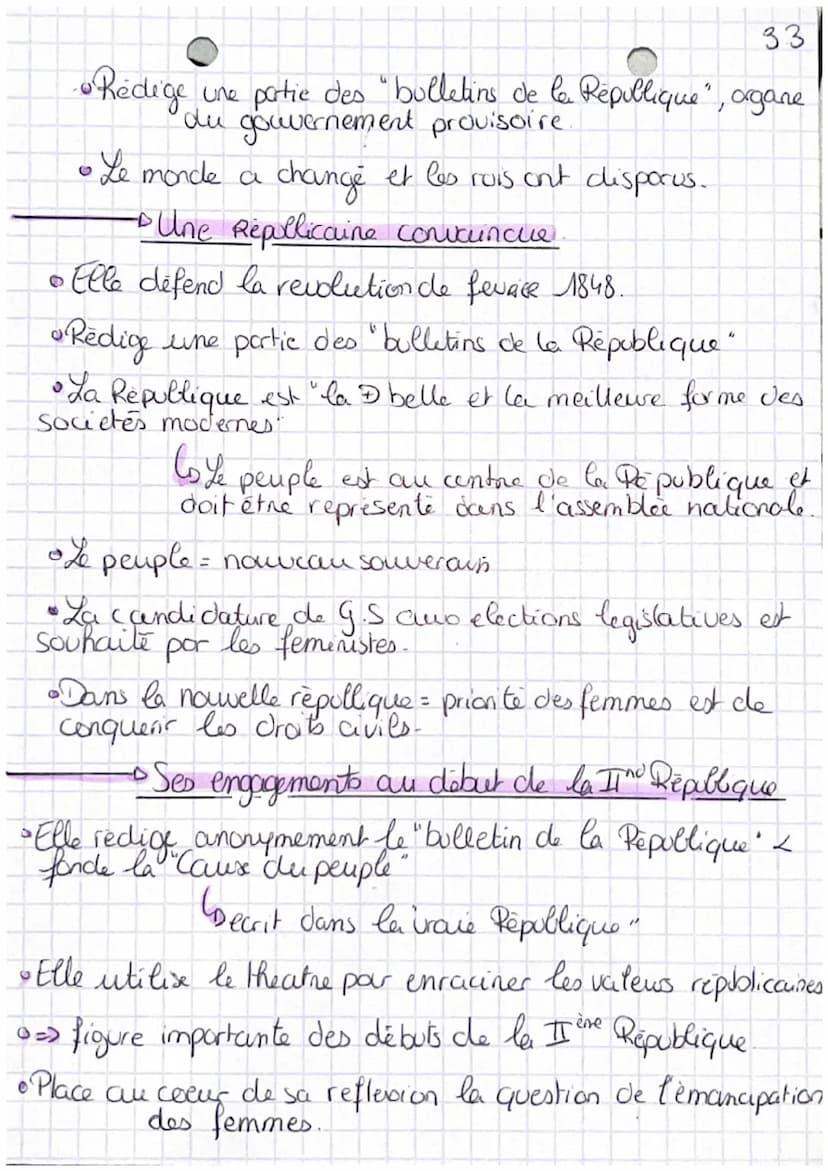 33
• Rédige une partie des "bulletins de la République", organe
du gouvernement provisoire.
• Le monde a changé et les rois ont disparus.
→ Une Républicaine convaincue.
• Elle défend la revolution de fevrier 1848.
• Rédige une partie des "bulletins de la République"
• La République est "la ⊕ belle et la meilleure forme des
societés modernes"
↳ Le peuple est au centre de la République et
doit être représenté dans l'assemblée nationale.
• Le peuple = nouveau souverain
• La candidature de G.S aux elections legislatives est
souhaité par les feministes.
• Dans la nouvelle république = priorité des femmes est de
conquerir les droits civils.
→ Ses engagements au début de la IInd République
• Elle redige anonymement le "bulletin de la République" &
fonde la "Cause du peuple"
↳ ecrit dans la "vraie République"
• Elle utilise le theatre pour enraciner les valeurs républicaines
• => figure importante des débuts de la IIène République.
• Place au coeur de sa reflexion la question de l'émancipation
des femmes.